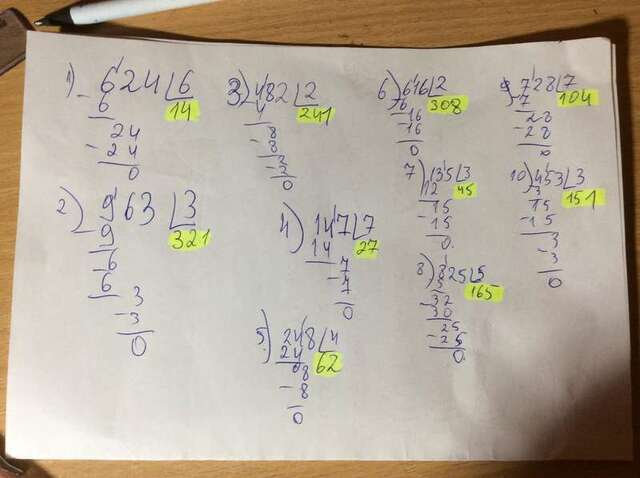 1) 624 6
6 14
24
- 24
0
2) 963 3
9 321
- 6
6
3
- 3
0
3) 482 2
4 241
8
- 8
2
- 2
0
4) 147 7
14 27
7
- 7
0
5) 248 4
24 62
08
- 8
0
6) 616 2
6 308
16
- 16
0
7) 135 3
12 45
15
- 15
0
8) 825 5
5 165
32
- 30
25
- 25
0
9 728 7
7 104
28
- 28
0
10) 453 3
3 151
15
- 15
3
- 3
0